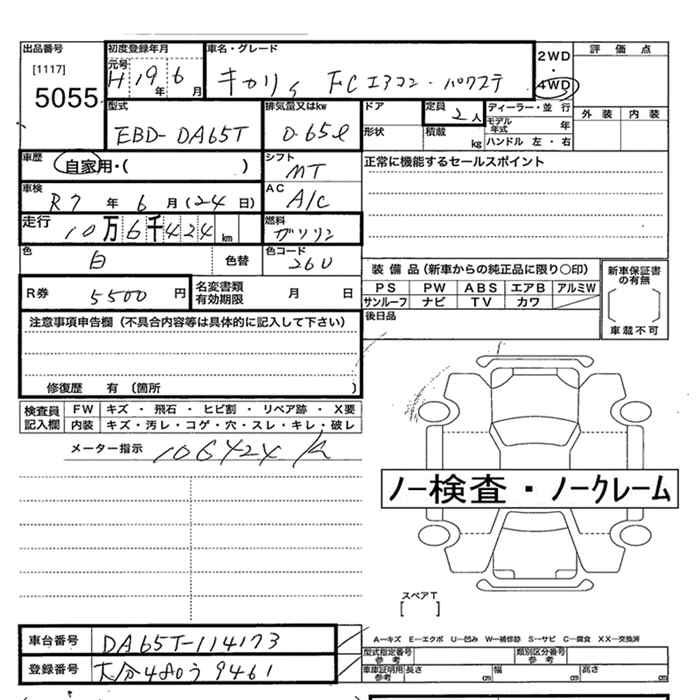 出品番号 初度登録年月 車名・グレード 2WD 評価点
[1117] 元号 H 19年 6月 キャリィ FCエアコン・パワステ ・
5055 4WD
型式 排気量又はkw ドア 定員 2人 ディーラー・並行 外装 内装
EBD-DA65T 0.65ℓ 形状 積載 kg モデル年式 年
ハンドル 左・右
車歴 自家用・( ) シフト MT 正常に機能するセールスポイント
車検 R7年 6月(24日) AC A/C
走行 10万6千424km 燃料 ガソリン
色 白 色替 色コード 26U
装備品(新車からの純正品に限り○印) 新車保証書の有無
R券 5500円 名変書類有効期限 月 日 PS PW ABS エアB アルミW
サンルーフ ナビ TV カワ
注意事項申告欄(不具合内容等は具体的に記入して下さい) 後日品 車載不可
修復歴 有(箇所 )
検査員記入欄 FW キズ・飛石・ヒビ割・リペア跡・X要
内装 キズ・汚レ・コゲ・穴・スレ・キレ・破レ
メーター指示 106424k
ノー検査・ノークレーム
スペアT
[ ]
車台番号 DA65T-114173 A―キズ E―エクボ U―凹み W―補修跡 S―サビ C―腐食 XX―交換済
型式指定番号 参考 類別区分番号 参考
登録番号 大分480う9461 車庫証明用参考 長さ cm 幅 cm 高さ cm